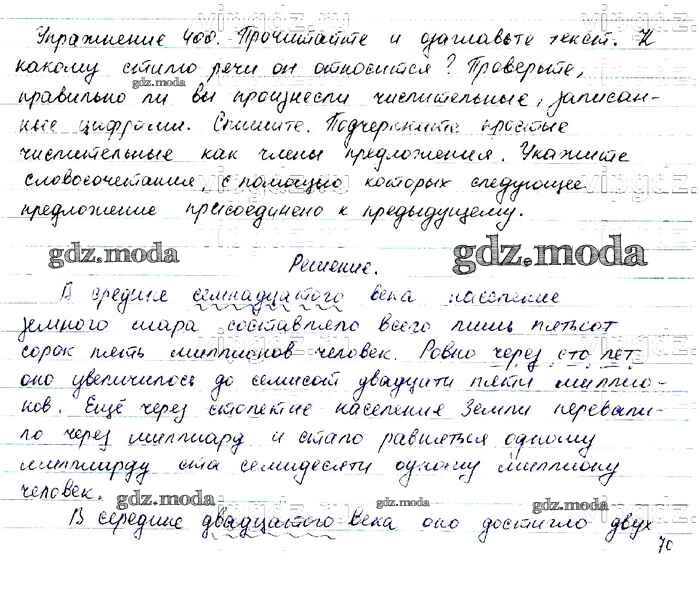 Упражнение 400. Прочитайте и озаглавьте текст. К
какому стилю речи он относится? Проверьте,
gdz.moda
правильно ли вы произнесли числительные, записан-
ные цифрами. Спишите. Подчеркните простые
числительные как члены предложения. Укажите
словосочетания, с помощью которых следующее
предложение присоединено к предыдущему.
gdz.moda gdz.moda
Решение.
В средине семнадцатого века население
земного шара составляло всего лишь пятьсот
сорок пять миллионов человек. Ровно через сто лет
оно увеличилось до семисот двадцити пяти миллио-
нов. Ещё через столетие население Земли перевали-
ло через миллиард и стало равняться одному
миллиарду ста семидесяти одному миллиону
человек.
gdz.moda gdz.moda gdz.moda
В середине двадцатого века оно достигло двух
70